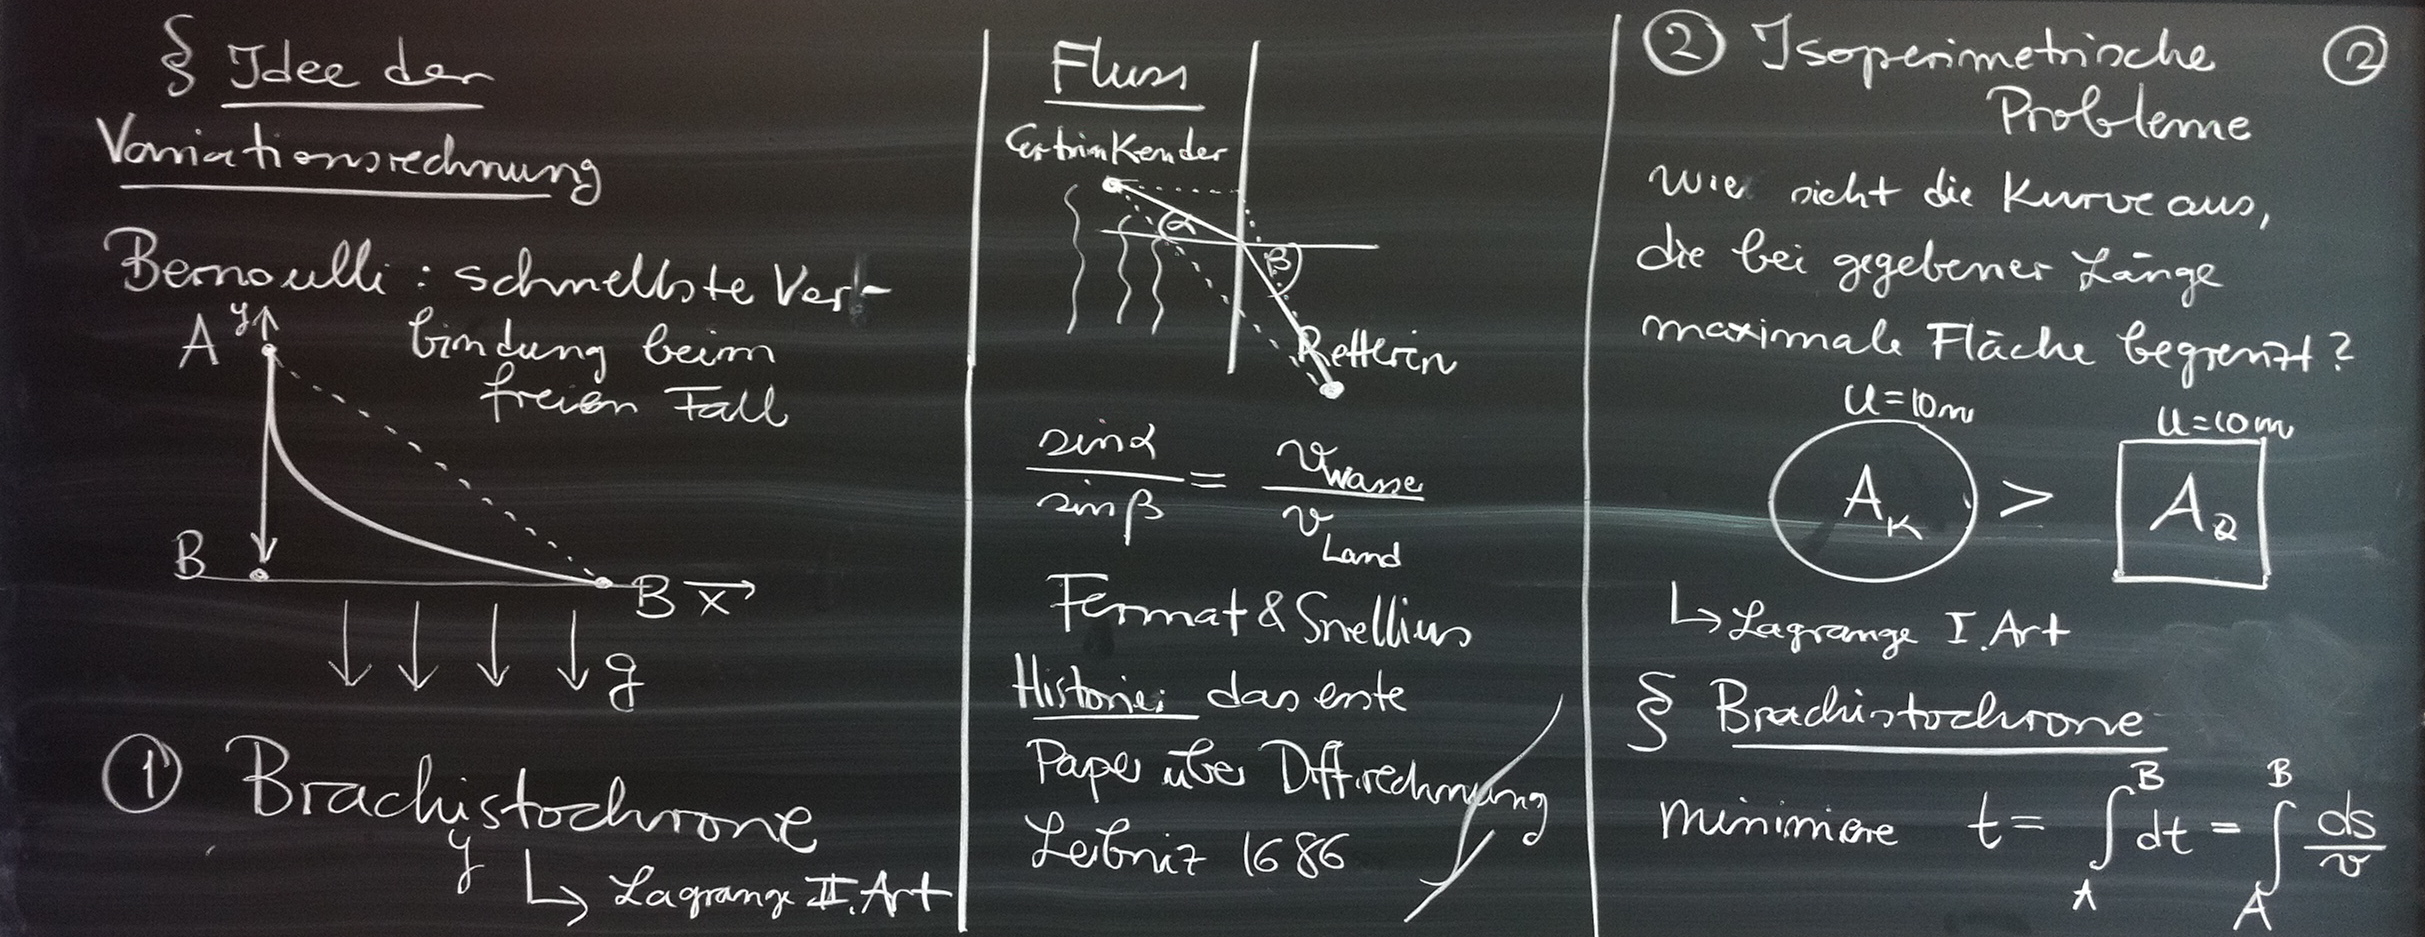 § Idee der
Variationsrechnung
Bernoulli: schnellste Ver-
bindung beim
freien Fall
A y
B
B x
g
① Brachistochrone
y
↳ Lagrange II. Art
Fluss
Ertrinkender
α
β
Retterin
sin α / sin β = v Wasse / v Land
Fermat & Snellius
Historie: das erste
Paper über Diff.rechnung
Leibniz 1686
② Isoperimetrische
Probleme
②
Wie sieht die Kurve aus,
die bei gegebener Länge
maximale Fläche begrenzt?
U=10m
U=10m
A_K > A_Q
↳ Lagrange I. Art
§ Brachistochrone
minimiere t = ∫_A^B dt = ∫_A^B ds/v